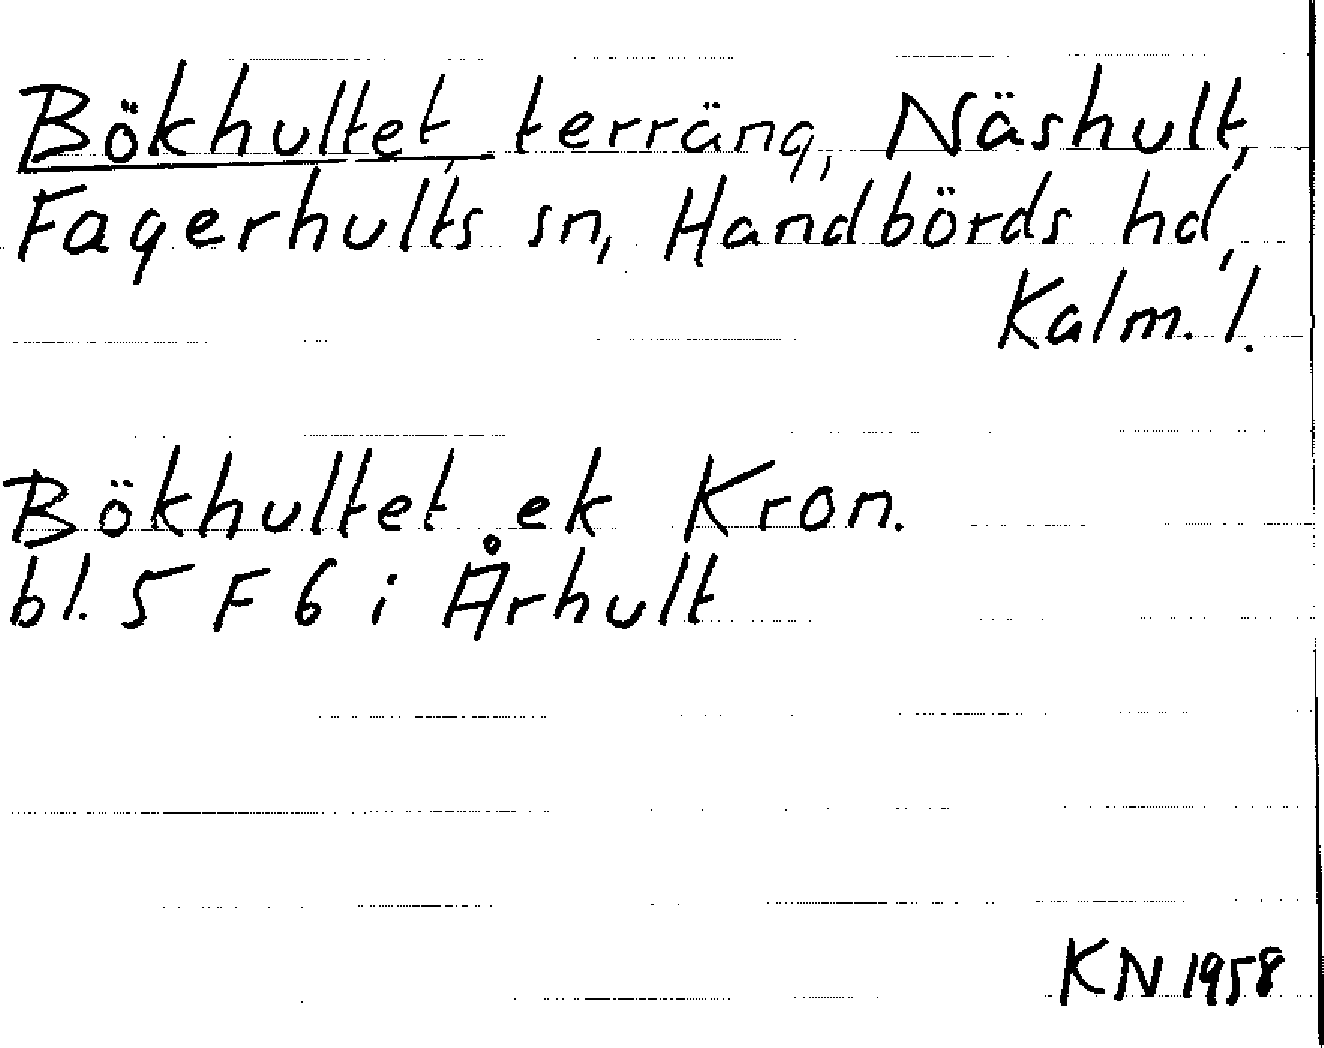 Bökhultet, terräng, Näshult,
Fagerhults sn, Handbörds hd,
Kalm. l.
Bökhultet ek Kron.
bl. 5 F 6 i Århult
KN 1958